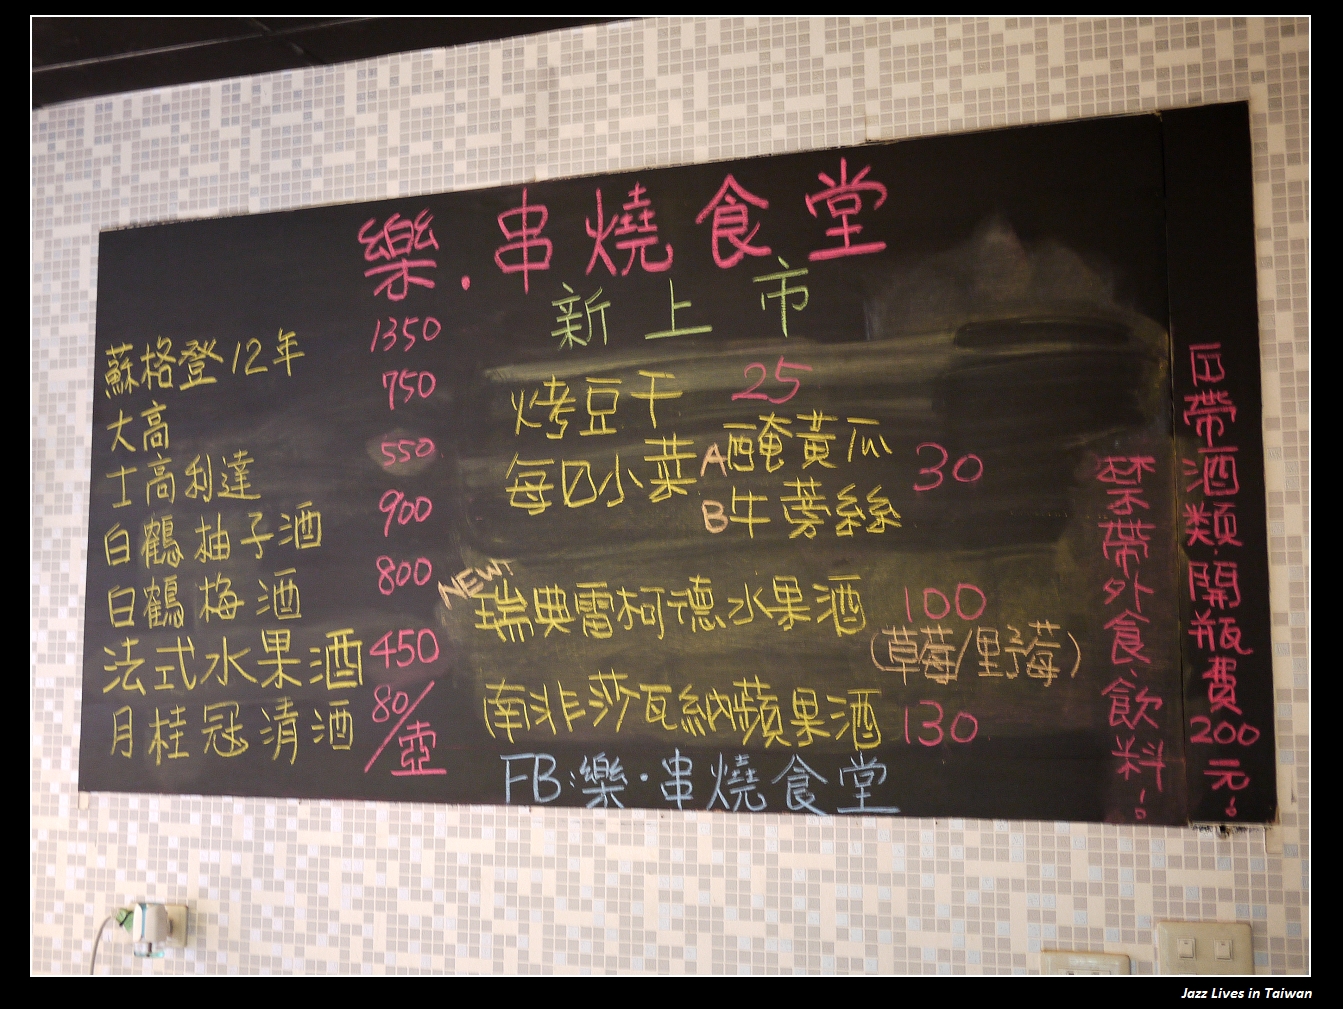 樂.串燒食堂
新上市
蘇格登12年 1350
大高 750
士高利達 550
白鶴柚子酒 900
白鶴梅酒 800
法式水果酒 450
月桂冠清酒 80/壺
烤豆干 25
每日小菜 A醃黃瓜 30
B牛蒡絲
NEW!
瑞典雷柯德水果酒 100
(草莓/野莓)
南非莎瓦納蘋果酒 130
FB:樂.串燒食堂
自帶酒類.開瓶費200元。
禁帶外食、飲料。
Jazz Lives in Taiwan